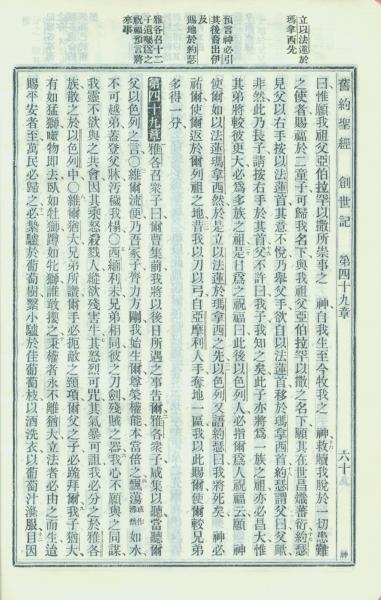 舊約聖經 創世記 第四十九章 六十 神
立以法蓮於
瑪拿西先
預言神必引
其後裔出伊
及
賜地於約瑟
雅各召十二
子遺囑爲之
祝福預言將
來事
曰惟願我祖亞伯拉罕以撒所崇事之 神自我生至今牧我之 神救贖我脫於一切患難
之使者賜福於二童子可歸我名下與我祖亞伯拉罕以撒之名下願其在世昌熾蕃衍約瑟
見父以右手按以法蓮首其意不悅乃舉父手欲自以法蓮首移於瑪拿西首約瑟謂父曰父歟
非然此乃長子請按右手於其首父不許曰我子我知之矣此子亦將爲一族之祖亦必昌大惟
其弟將較彼更大必爲多族之祖是日爲之祝福曰此後以色列人必指爾爲人祝福云願 神
使爾如以法蓮瑪拿西然於是立以法蓮於瑪拿西之先以色列又語約瑟曰我將死矣 神必
祐爾使爾返於爾列祖之地昔我以刀以弓自亞摩利人手奪地一區我以此賜爾使爾較兄弟
多得一分
第四十九章 雅各召衆子曰爾曹集前我將以後日所遇之事告爾雅各衆子咸集以聽當聽爾
父以色列之言〇維爾流便乃吾冢子膂力方剛我始生爾尊榮權能本當倍之飄蕩或作沸然如水
不可越弟蓋登父牀污穢我榻〇西緬利未兄弟相同彼之刀劍殘賊之器我心不願與之同謀
我靈不欲與之共會因其乘怒殺戮人縱欲殘害牛其怒烈可咒其氣暴可詛我必分之於雅各
族散之於以色列中〇維爾猶大兄弟所讚爾手必扼敵之頸項爾父之子必跪拜爾我子猶大
有如猛獅囓物卽去臥如牡獅蹲如牝獅誰敢擾之秉權者永不離猶大立法者必由之而生迨
賜平安者至萬民必歸之必繫驢於葡萄樹繫小驢於佳葡萄枝以酒洗衣以葡萄汁滌服目因